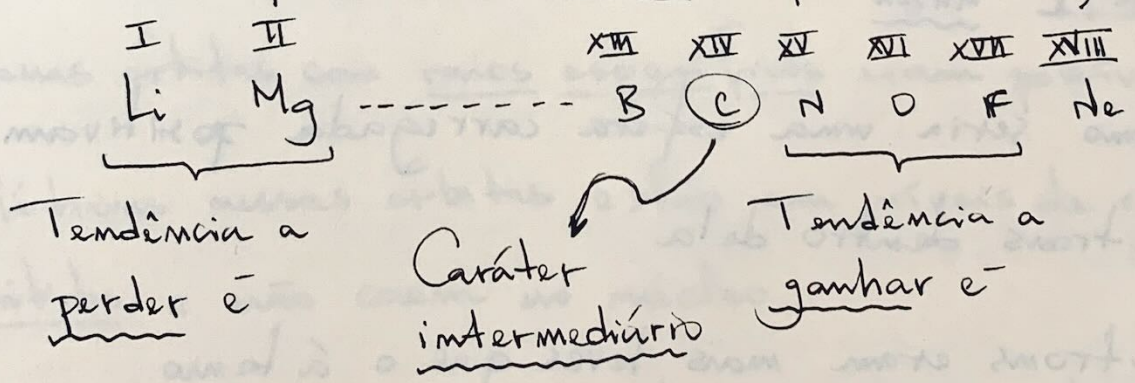 I II XIII XIV XV XVI XVII XVIII
Li Mg --------- B C N O F Ne
Tendência a
perder e⁻
Caráter
intermediúrio
Tendência a
ganhar e⁻